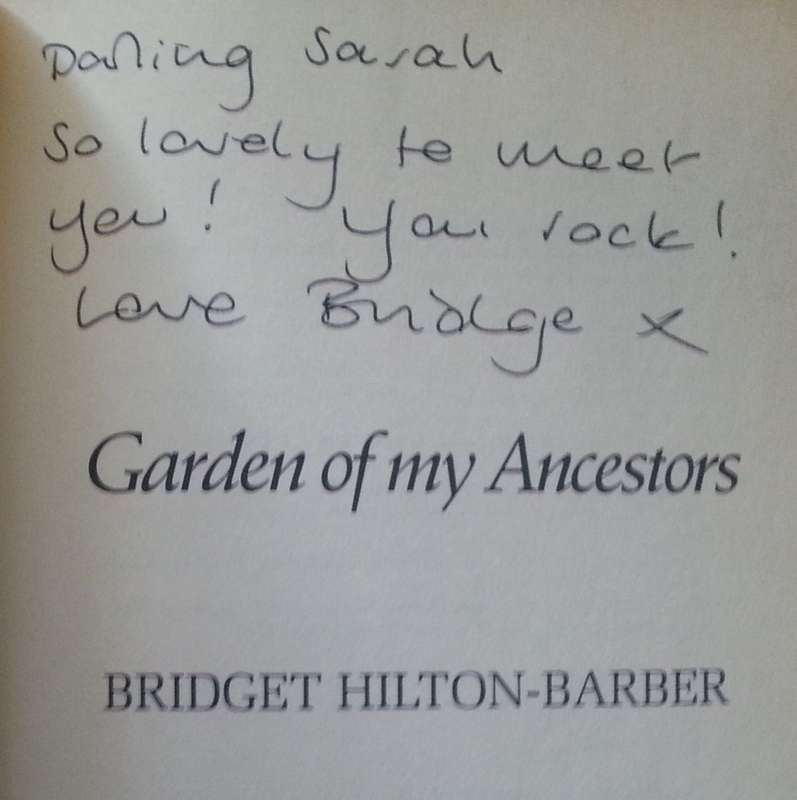 Darling Sarah
So lovely to meet
you! You rock!
Love Bridge x
Garden of my Ancestors
BRIDGET HILTON-BARBER